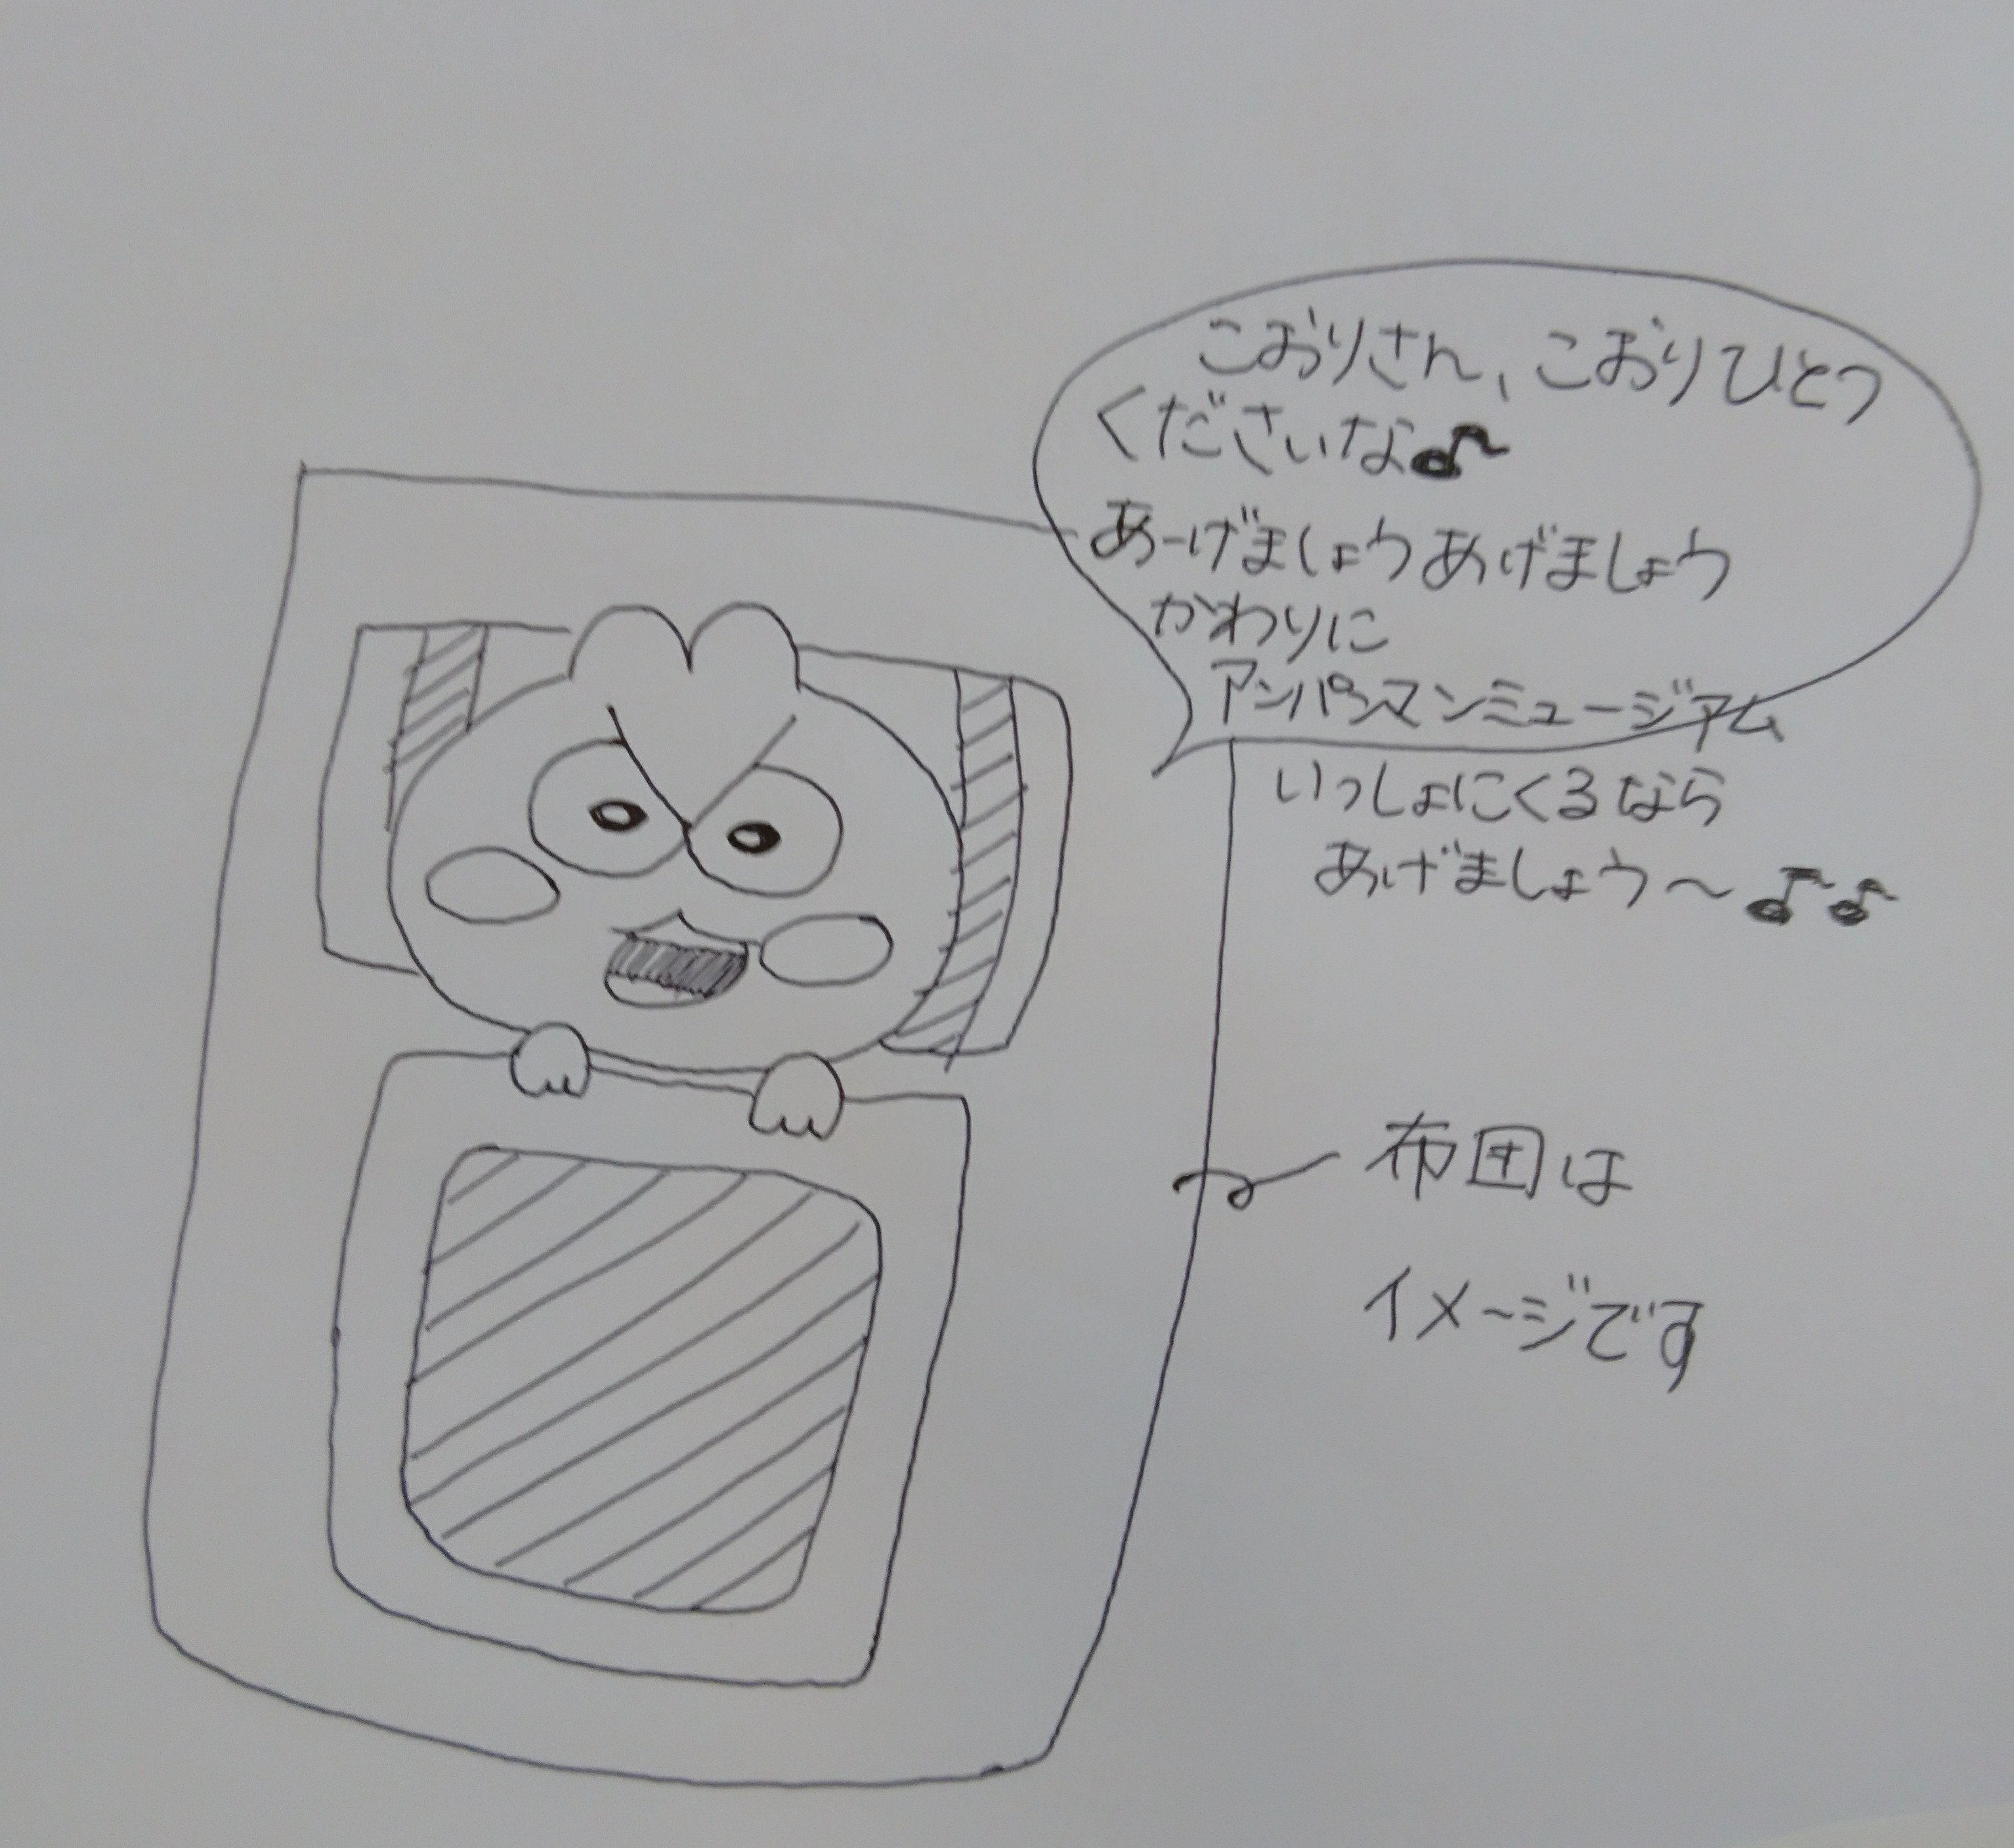 こおりさん、こおりひとつ
くださいな♪
あーげましょうあげましょう
かわりに
アンパンマンミュージアム
いっしょにくるなら
あげましょう〜♪♪
布団は
イメージです